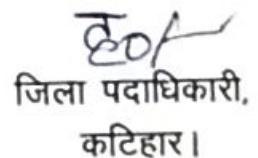 ह०/-
जिला पदाधिकारी,
कटिहार।